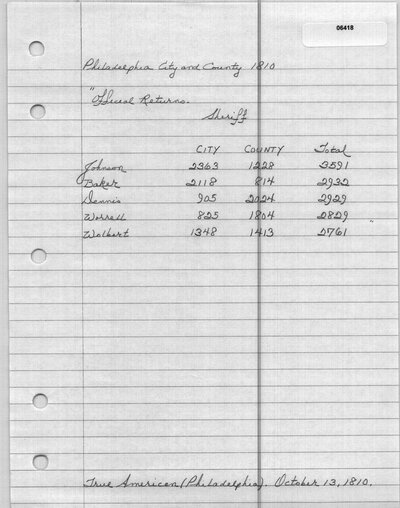 06418
Philadelphia City and County 1810
"Official Returns.
Sheriff
CITY COUNTY Total
Johnson 2363 1228 3591
Baker 2118 814 2932
Dennis 905 2024 2929
Worrell 825 1804 2829 "
Wolbert 1348 1413 2761
True American (Philadelphia). October 13, 1810.